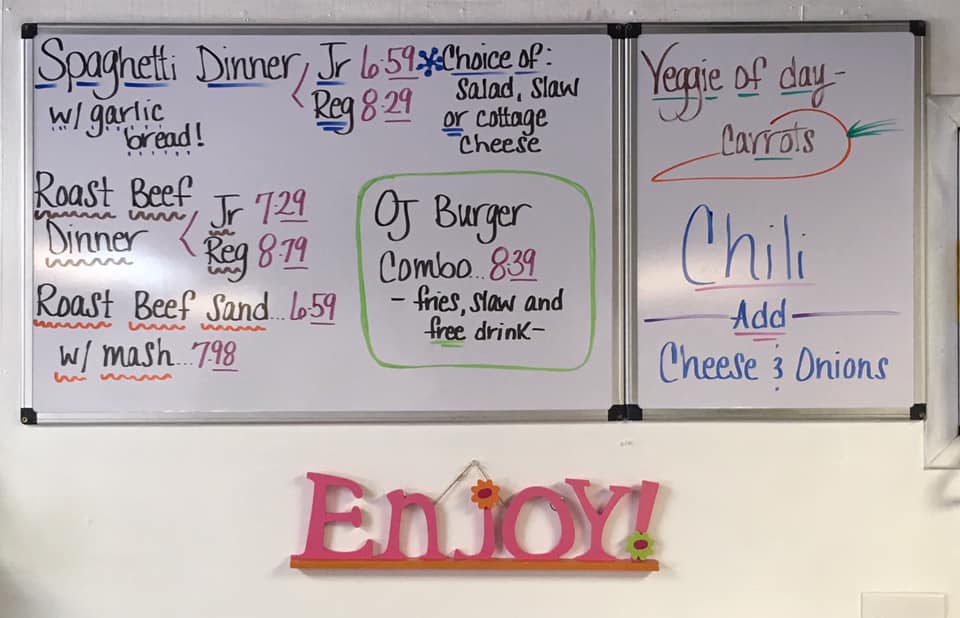 Spaghetti Dinner
w/ garlic
bread!
Jr 6.59
Reg 8.29
*Choice of:
Salad, Slaw
or cottage
Cheese
Roast Beef
Dinner
Jr 7.29
Reg 8.79
Roast Beef Sand...6.59
w/ mash...7.98
OJ Burger
Combo...8.39
- fries, slaw and
free drink -
Veggie of day -
Carrots
Chili
Add
Cheese & Onions
Enjoy!